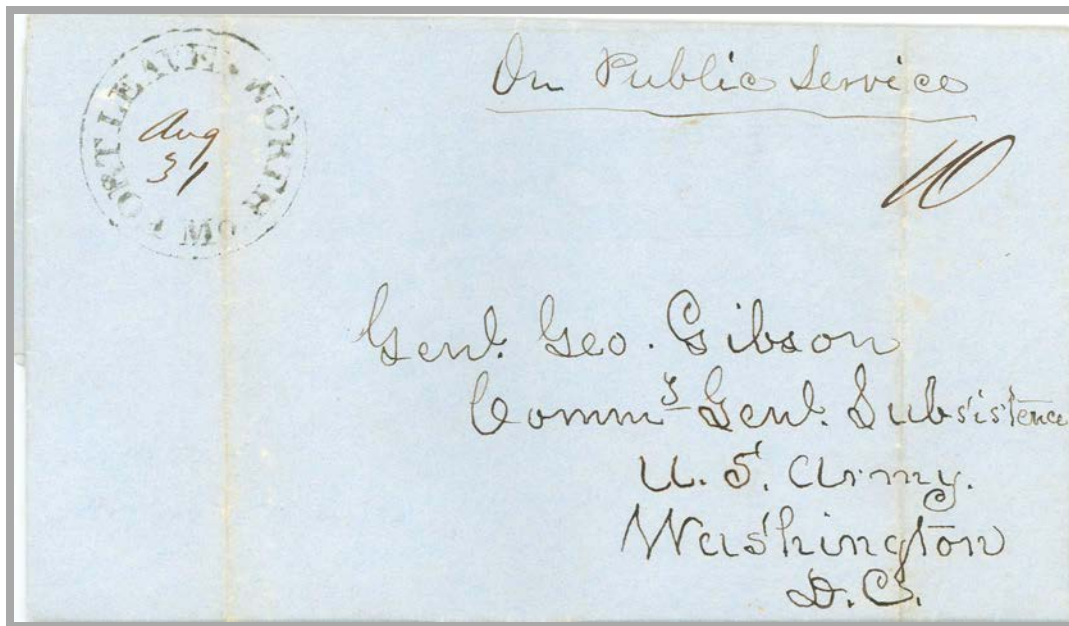 FORT LEAVENWORTH MO
Aug
31
On Public Service
10
Genl. Geo. Gibson
Commy Genl. Subsistence
U. S. Army.
Washington
D. C.